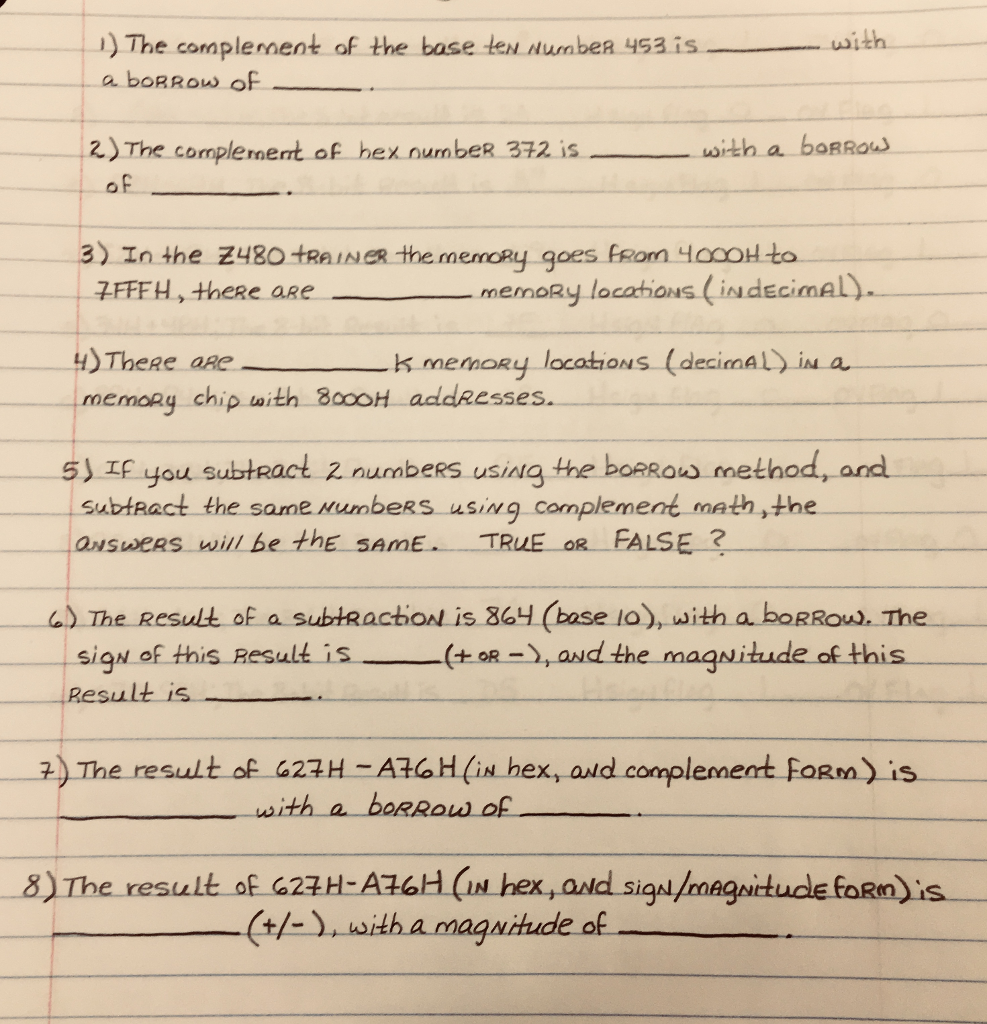 1) The complement of the base ten number 453 is ________ with
a borrow of ______.
2) The complement of hex number 372 is ______ with a borrow
of ________.
3) In the Z480 trainer the memory goes from 4000H to
7FFFH, there are ________ memory locations (in decimal).
4) There are ________ K memory locations (decimal) in a
memory chip with 8000H addresses.
5) If you subtract 2 numbers using the borrow method, and
subtract the same numbers using complement math, the
answers will be the same. TRUE or FALSE ?
6) The result of a subtraction is 864 (base 10), with a borrow. The
sign of this result is ____ (+ or -), and the magnitude of this
result is ______.
7) The result of 627H - A76H (in hex, and complement form) is
________ with a borrow of ______.
8) The result of 627H-A76H (in hex, and sign/magnitude form) is
________ (+/-), with a magnitude of ________.